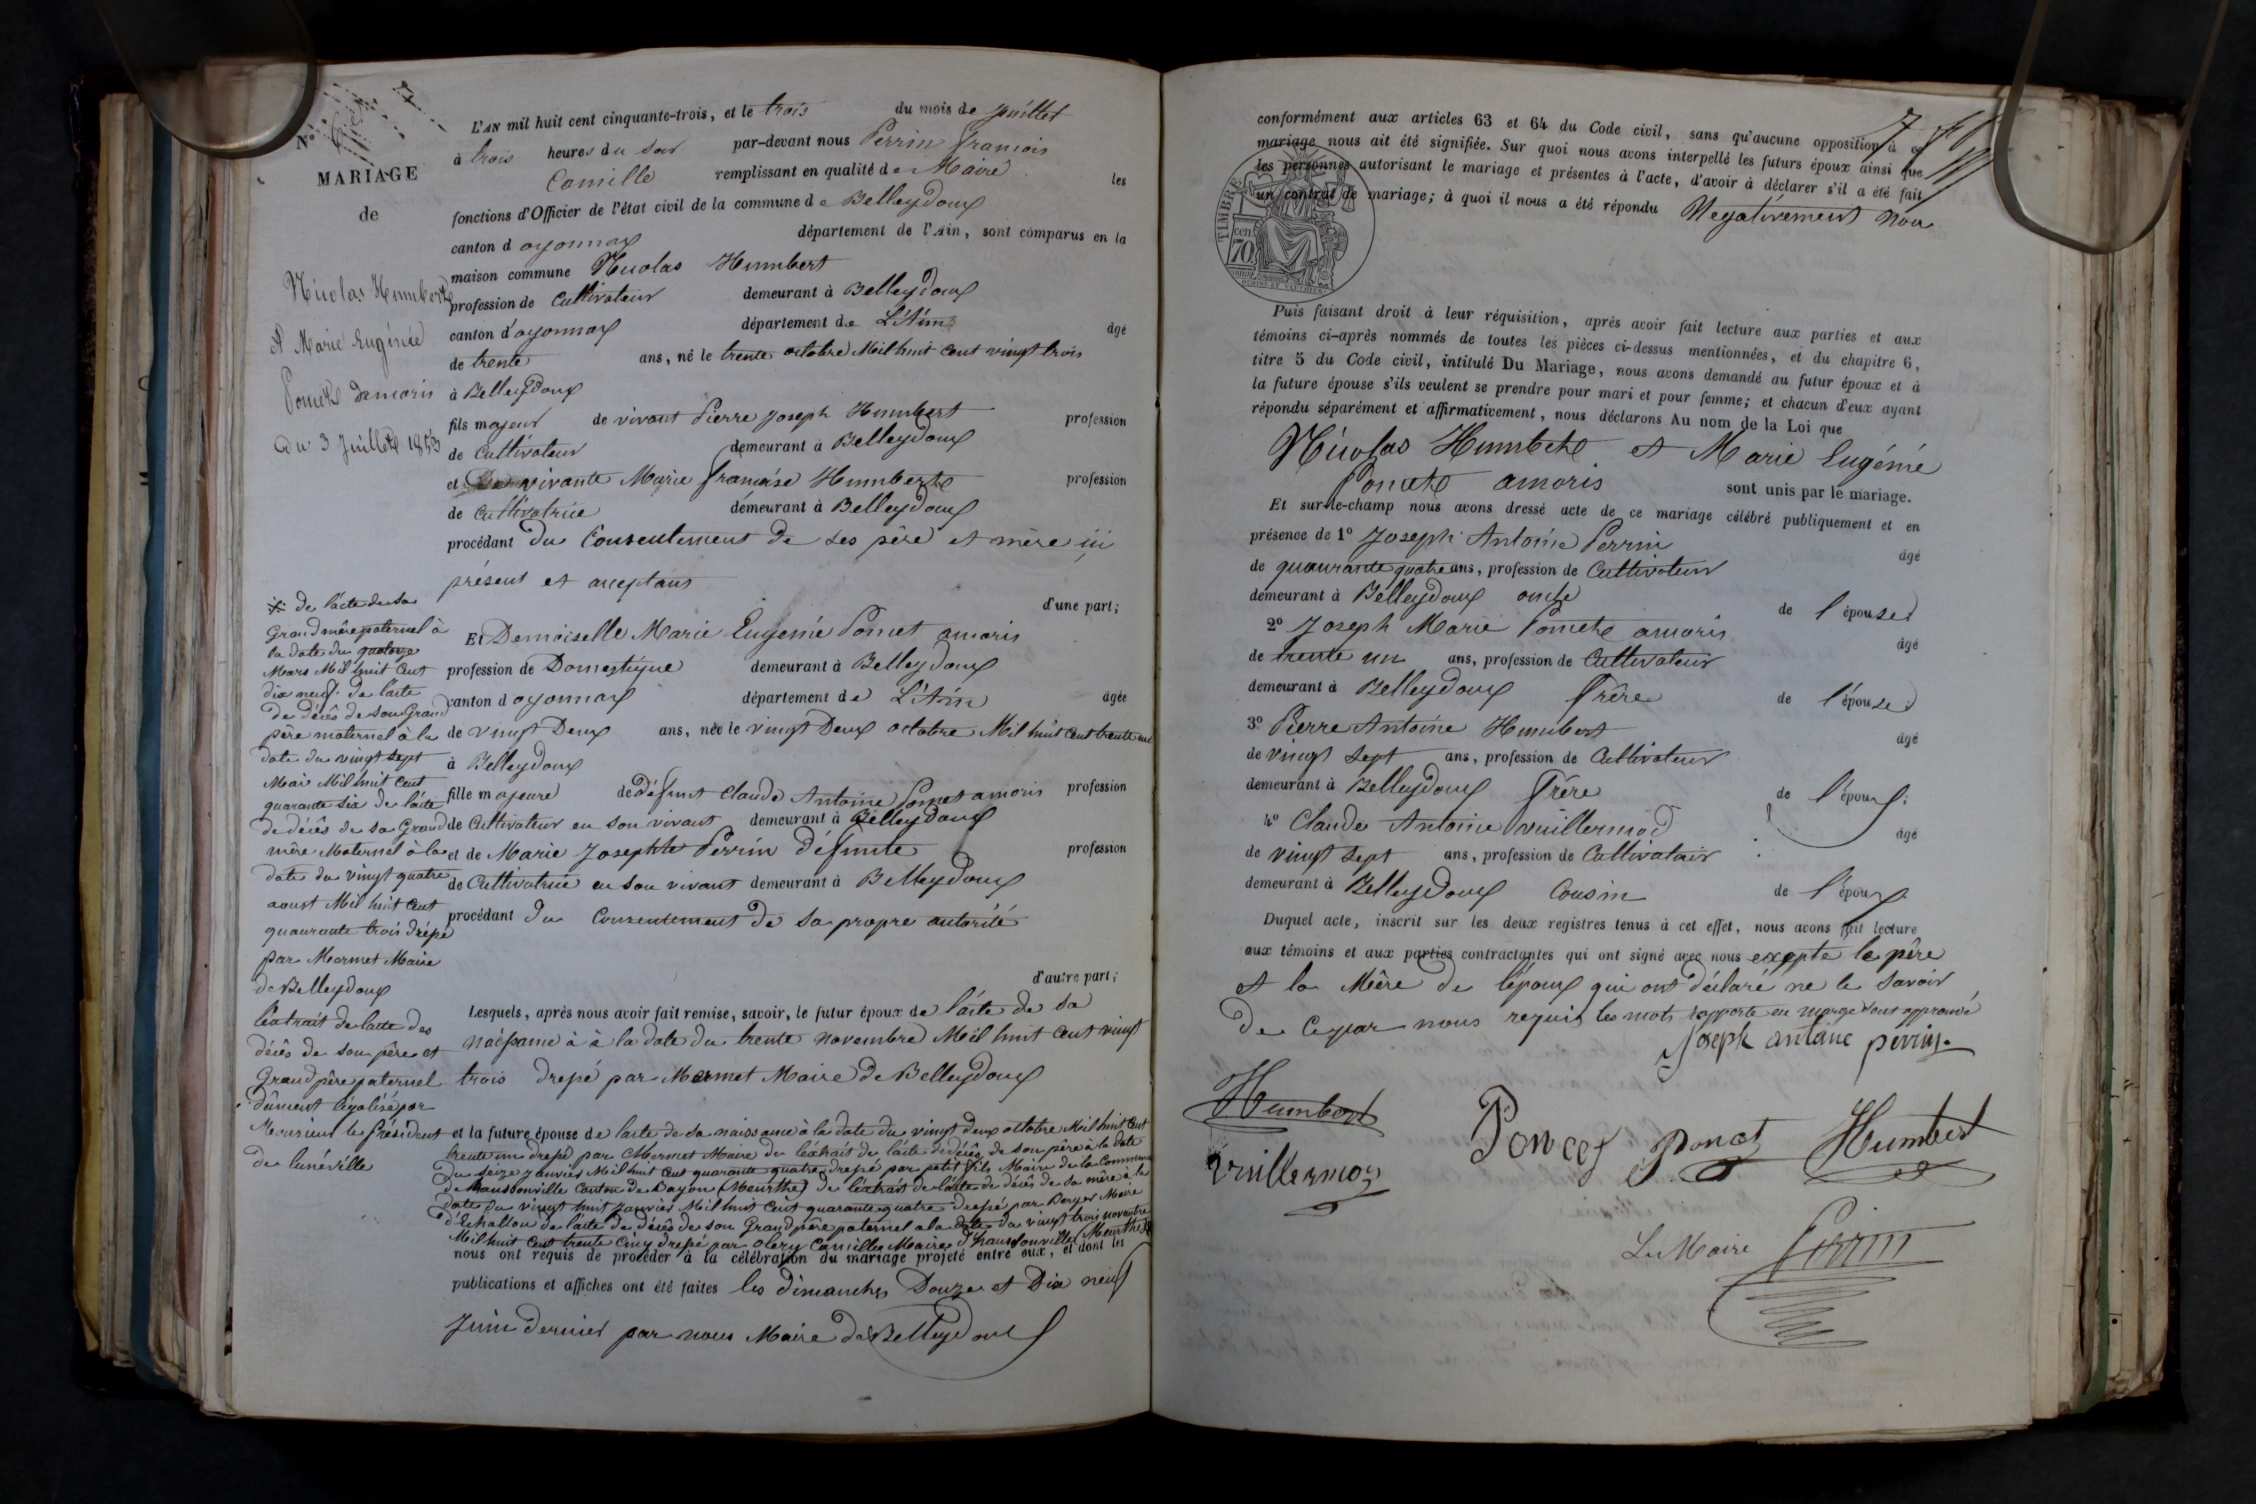 N°
MARIAGE
de
Nicolas Humbert
et Marie Eugénie
Poncet damoris
du 3 Juillet 1853
L'AN mil huit cent cinquante-trois, et le trois du mois de juillet
à trois heures du soir par-devant nous Perrin francois
Camille remplissant en qualité de Maire les
fonctions d'Officier de l'état civil de la commune de Belleydoux
canton d oyonnax département de l'Ain, sont comparus en la
maison commune Nicolas Humbert
profession de Cultivateur demeurant à Belleydoux
canton d'oyonnax département de L'Ain âgé
de trente ans, né le trente octobre Mil huit Cent vingt trois
à Belleydoux
fils majeur de vivant Pierre Joseph Humbert profession
de Cultivateur demeurant à Belleydoux
et vivante Marie francoise Humberte profession
de Cultivatrice demeurant à Belleydoux
procédant du Consentement de ses père et mère ici
présent et acceptant
d'une part;
Et Demoiselle Marie Eugenie Poncet amoris
profession de Domestique demeurant à Belleydoux
canton d oyonnax département de L'Ain âgée
de vingt Deux ans, née le vingt Deux octobre Mil huit Cent trente un
à Belleydoux
fille majeure de défunt Claude Antoine Poncet amoris profession
de Cultivateur en son vivant demeurant à Belleydoux
et de Marie Josephte Perrin défunte profession
de Cultivatrice en son vivant demeurant à Belleydoux
procédant du Consentement de sa propre autorité
d'autre part;
Lesquels, après nous avoir fait remise, savoir, le futur époux de l'acte de sa
naissance à à la date du trente novembre Mil huit Cent vingt
trois dressé par Mermet Maire de Belleydoux
et la future épouse de lacte de sa naissance à la date du vingt deux octobre Mil huit Cent
trente un dressé par Mermet Maire de l'extrait de l'acte de décès de son père à la date
du seize janvier Mil huit Cent quarante quatre dressé par petit fils Maire de la Commune
de haussonville Canton de Bayon (Meurthe) de l'extrait de l'acte de décès de sa mère à la
date du vingt huit janvier Mil huit Cent quarante quatre dressé par Maire
d'Echallon de l'acte de décès de son Grand père paternel a la date du vingt trois novembre
Mil huit Cent trente Cinq dressé par Camille Maire d'haussonville (Meurthe)
nous ont requis de procéder à la célébration du mariage projeté entre eux, et dont les
publications et affiches ont été faites les dimanches Douze et Dix neuf
Juin dernier par nous Maire de Belleydoux
de l'acte de sa
Grand mère paternel à
la date du quatorze
Mars Mil huit Cent
dix neuf. de l'acte
de décès de son Grand
père maternel à la
date du vingt sept
Mai Mil huit Cent
quarante six de l'acte
de décès de sa Grand
mère Maternel à la
date du vingt quatre
aoust Mil huit Cent
quaurante trois dréssé
par Mermet Maire
de Belleydoux
l'extrait de lacte des
décès de son père et
Grand père paternel
dûment légalisé par
Monsieur le président
de lunéville
conformément aux articles 63 et 64 du Code civil, sans qu'aucune opposition à ce
mariage nous ait été signifiée. Sur quoi nous avons interpellé les futurs époux ainsi que
les personnes autorisant le mariage et présentes à l'acte, d'avoir à déclarer s'il a été fait
un contrat de mariage; à quoi il nous a été répondu Negativement non
TIMBRE
70 cen
Puis faisant droit à leur réquisition, après avoir fait lecture aux parties et aux
témoins ci-après nommés de toutes les pièces ci-dessus mentionnées, et du chapitre 6,
titre 5 du Code civil, intitulé Du Mariage, nous avons demandé au futur époux et à
la future épouse s'ils veulent se prendre pour mari et pour femme; et chacun d'eux ayant
répondu séparément et affirmativement, nous déclarons Au nom de la Loi que
Nicolas Humbert et Marie Eugénie
Poncet amoris sont unis par le mariage.
Et sur-le-champ nous avons dressé acte de ce mariage célébré publiquement et en
présence de 1° Joseph Antoine Perrin âgé
de quaurante quatre ans, profession de Cultivateur
demeurant à Belleydoux oncle de l'épouse
2° Joseph Marie Poncet amoris âgé
de trente un ans, profession de Cultivateur
demeurant à Belleydoux frère de l'épouse
3° Pierre Antoine Humbert âgé
de vingt sept ans, profession de Cultivateur
demeurant à Belleydoux frère de l'époux
4° Claude Antoine vuillermod âgé
de vingt sept ans, profession de Cultivateur
demeurant à Belleydoux Cousin de l'époux
Duquel acte, inscrit sur les deux registres tenus à cet effet, nous avons fait lecture
aux témoins et aux parties contractantes qui ont signé avec nous excepté le père
et la Mère de l'époux qui ont déclaré ne le savoir
de ce par nous requis les mots rapporté en marge sont approuvé
Joseph antoine perrin
Humbert
Poncet
Poncet
Humbert
Vuillermoz
Le Maire Perrin